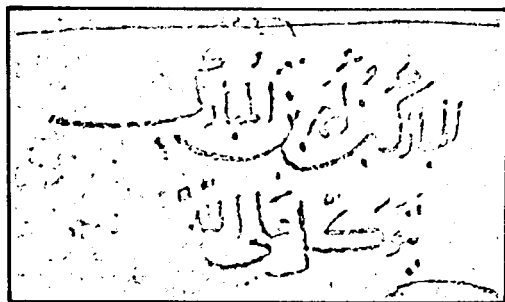 المبارك بن أحمد بن المبارك
توكّل على الله